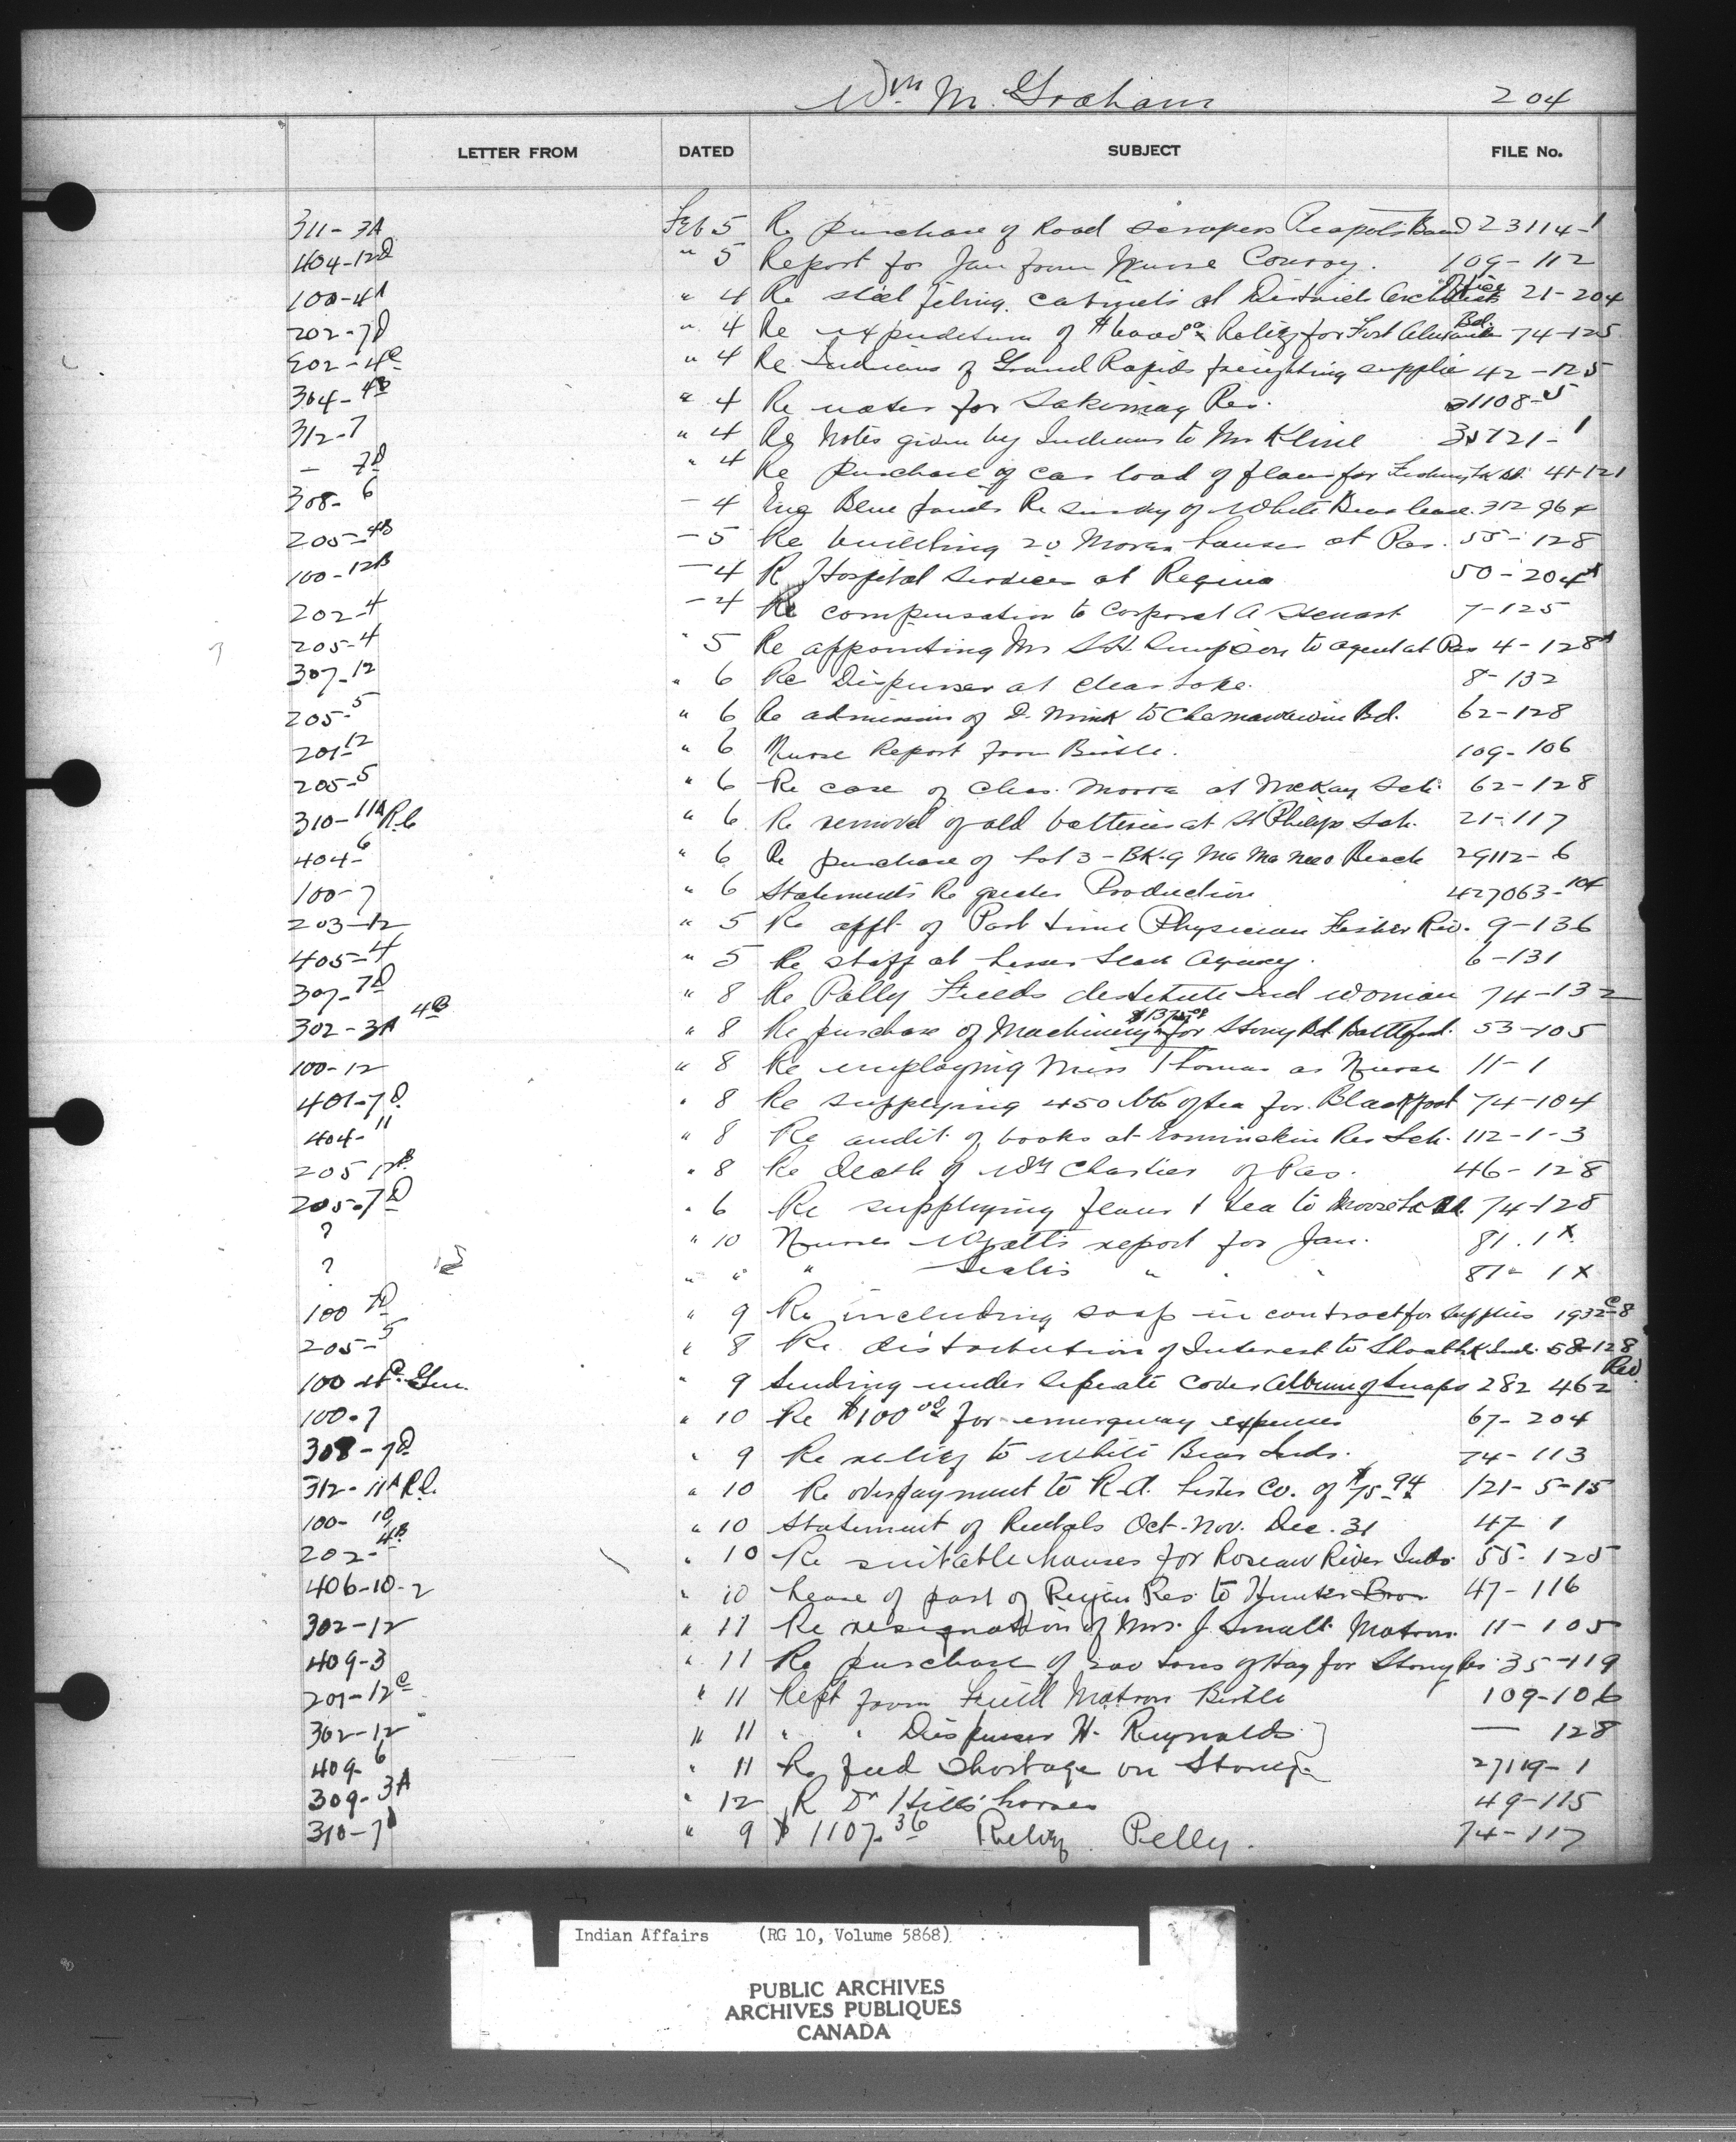 Wm M. Graham 204
LETTER FROM DATED SUBJECT FILE No.
311-3A Feb 5 Re purchase of Road scrapers Peapots Band 23114-1
404-12D " 5 Report for Jan from Nurse Conroy. 109-112
100-4A " 4 Re steel filing cabinets at District Office 21-204
202-7D " 4 Re expenditure of $600000 Relief for Fort Alexander Bd. 74-125
202-4C " 4 Re Indians of Grand Rapids freighting supplies 42-125
304-4B " 4 Re water for Sakimay Res. 31108-5
312-7 " 4 Re Notes given by Indians to Mr Kline 35121-1
- 7D " 4 Re purchase of car load of flour for 41-121
308-6 - 4 Enc Blue prints Re survey of White Bear lease. 312 964
205-4B - 5 Re building 20 houses at Pas. 55-128
100-12B - 4 R Hospital Services at Regina 50-204
202-4 - 4 Re compensation to Corporal A Stewart 7-125
205-4 " 5 Re appointing Mr S.H. Simpson to agent at Pas 4-128
307-12 " 6 Re Dispenser at Clear Lake. 8-132
205-5 " 6 Re admission of D. Mink to Chemawawin Bd. 62-128
201-12 " 6 Nurse Report from Birtle. 109-106
205-5 " 6 Re case of Chas. Moore at McKay Sch. 62-128
310-11A R.C " 6 Re removal of old batteries at St Philips Sch. 21-117
404-6 " 6 Re purchase of Lot 3 - BK-9 Ma Me Beach 29112-6
100-7 " 6 Statements Re greater Production 427063-104
203-12 " 5 Re appt. of Part time Physician Fisher Riv. 9-136
405-4 " 5 Re staff at Lesser Slave Agency. 6-131
307-7D " 8 Re Polly Fields destitute Ind woman 74-132
302-3A 4B " 8 Re purchase of Machinery $1375.00 for Stony Bd. Battleford. 53-105
100-12 " 8 Re employing Miss Thomas as Nurse 11-1
401-7D " 8 Re supplying 450 lbs of tea for Blackfoot 74-104
404-11 " 8 Re audit of books at Ermineskin Res Sch. 112-1-3
205 12B " 8 Re death of Wm Chartier of Pas. 46-128
205-7D " 6 Re supplying flour & tea to Moose Lk Bd. 74-128
? " 10 Nurse Wyatts report for Jan. 81.1X
? " " " " " " 81-1X
100 7D " 9 Re including soap in contract for Supplies 1932C-8
205-5 " 8 Re distribution of Interest to Shoal Lk Inds. 58-128
100 Gen. " 9 Sending under seperate cover Album of Snaps 282 462 Rev
100-7 " 10 Re $100.00 for emergency expenses 67-204
308-7D " 9 Re relief to White Bear Inds. 74-113
312-11A R.C. " 10 Re overpayment to R.A. Lister Co. of $75.94 121-5-15
100-10 " 10 Statement of Rentals Oct. Nov. Dec. 31 47-1
202-4B " 10 Re suitable houses for Roseau River Inds. 55-125
406-10-2 " 10 Lease of part of Peigan Res. to Hunter Bros 47-116
302-12 " 11 Re resignation of Mrs. J. Small Matron. 11-105
409-3 " 11 Re purchase of 200 tons of Hay for Stony Res 35-119
201-12C " 11 Rept from Field Matron Birtle 109-106
302-12 " 11 " " Dispenser H. Reynolds } — 128
409-6 " 11 Re feed shortage on Stoney 27119-1
309-3A " 12 R Dr Hills' horses 49-115
310-7D " 9 $1107.36 Relief Pelly. 74-117
Indian Affairs (RG 10, Volume 5868)
PUBLIC ARCHIVES
ARCHIVES PUBLIQUES
CANADA